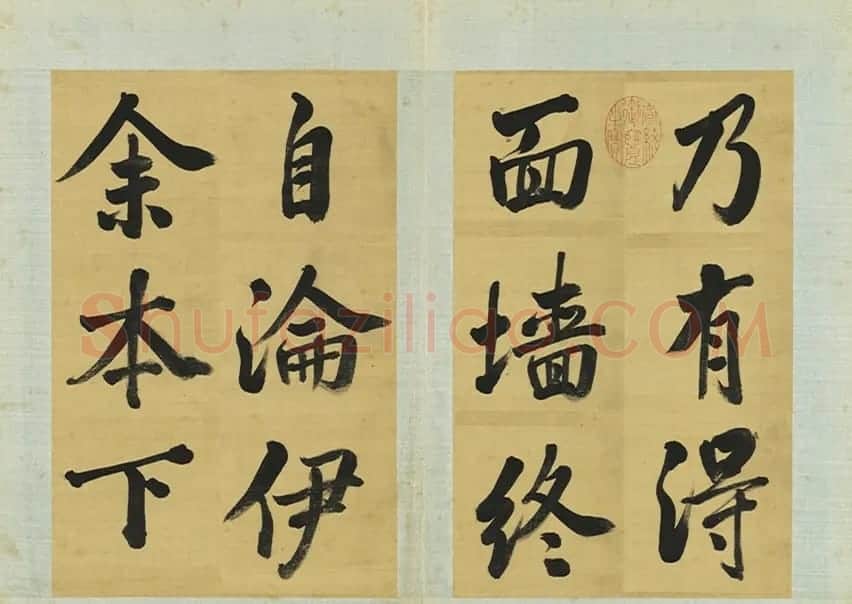 乃有得
面墙終
自淪伊
余本下
Shufaziliao.COM